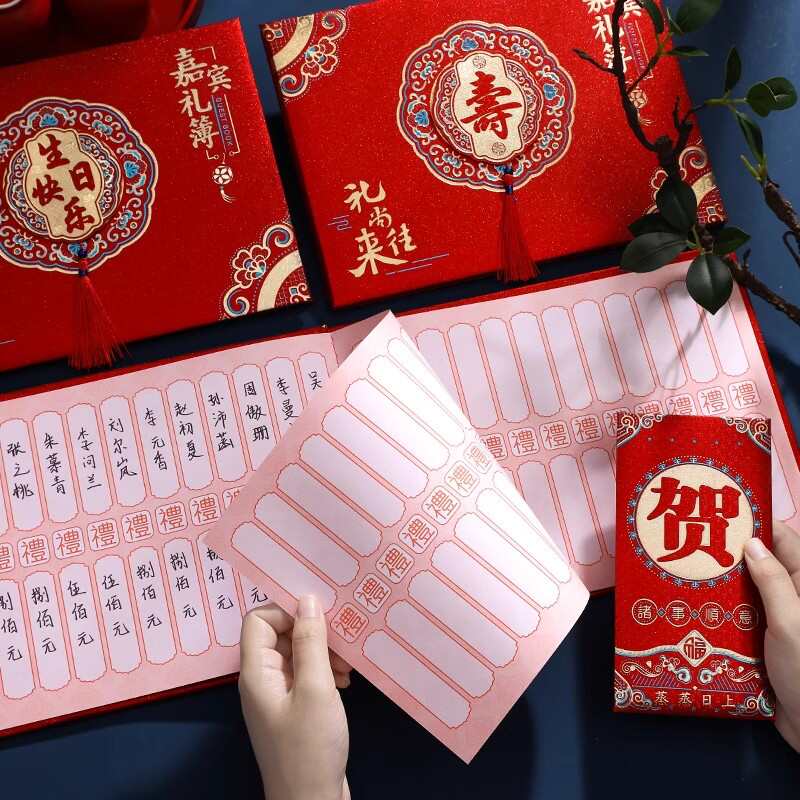 生日快乐
「宾
嘉礼簿」
GUEST BOOK
寿
礼尚往来
宾
嘉礼簿
张之桃
朱慕青
李问兰
刘尔岚
李元香
赵初夏
孙沛菡
周傲珊
李曼
吴
禮禮禮禮禮禮禮
捌佰元
捌佰元
伍佰元
伍佰元
捌佰元
捌佰元
禮禮禮禮禮禮禮
禮禮禮禮禮禮禮禮禮
贺
諸事順意
福
蒸蒸日上